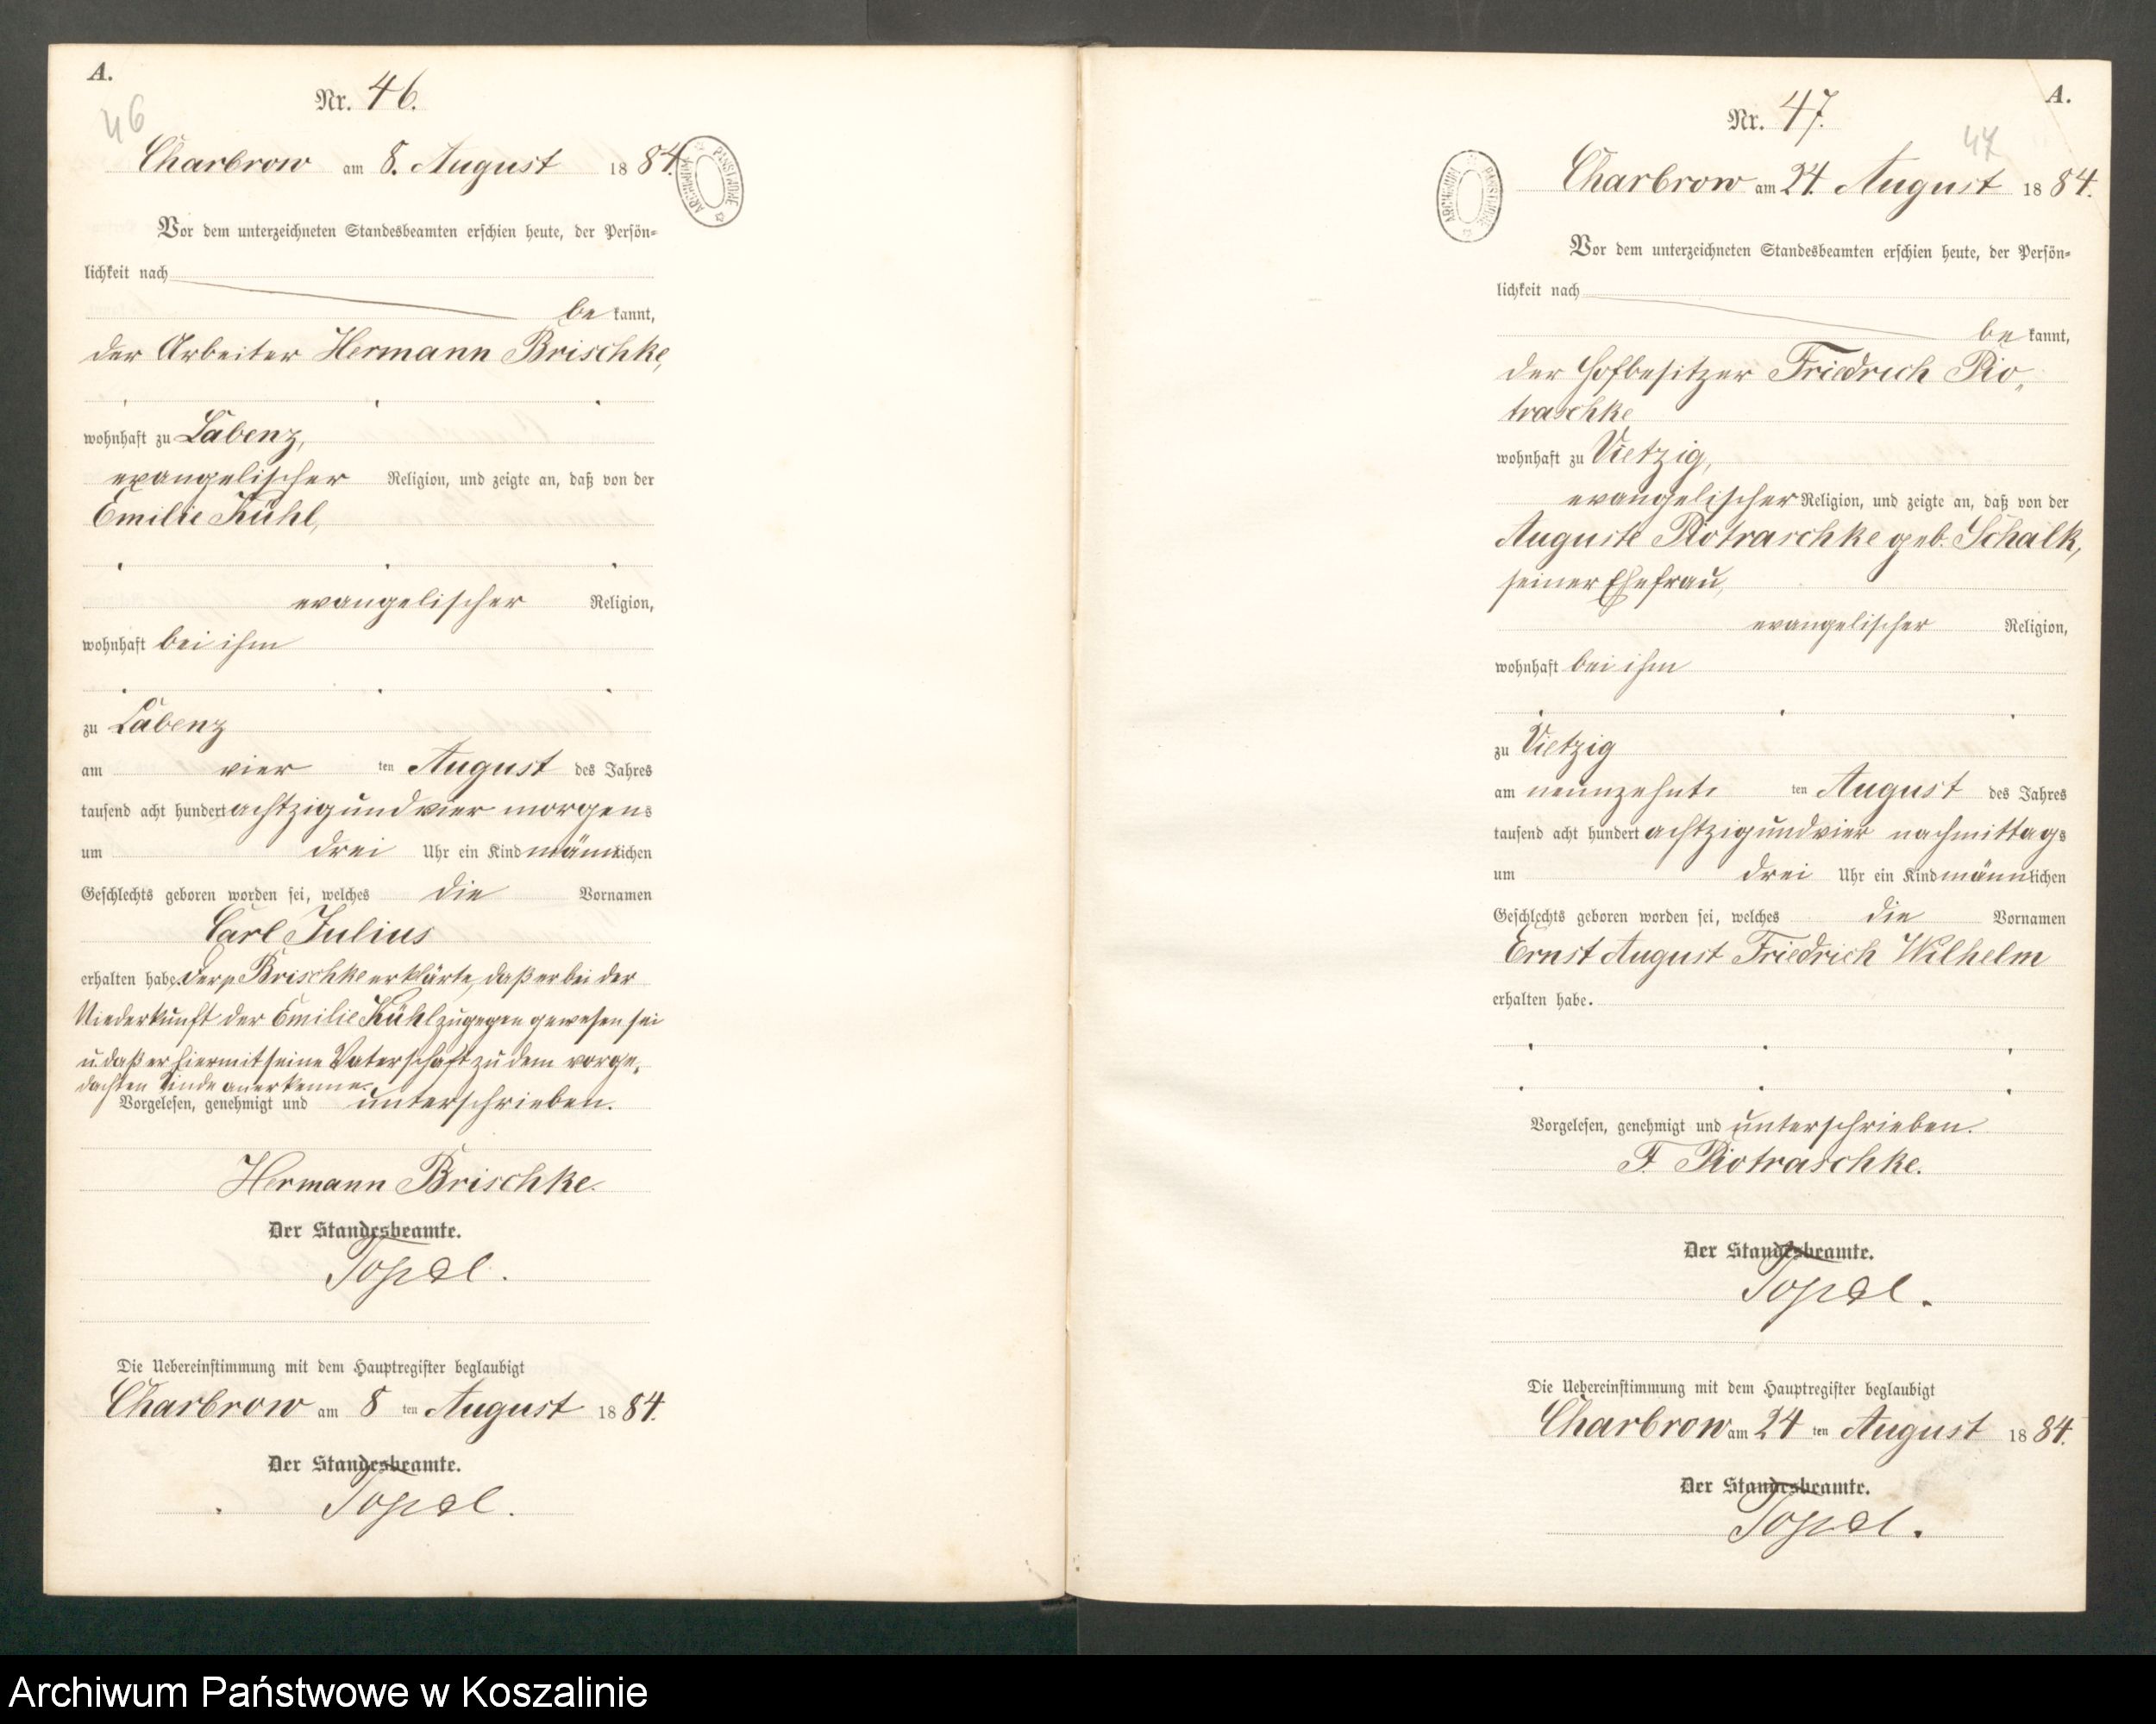 A.
Nr. 46.
46
Charbrow am 8. August 1884.
ARCHIWUM PAŃSTWOWE
Vor dem unterzeichneten Standesbeamten erschien heute, der Persön-
lichkeit nach
be kannt,
der Arbeiter Hermann Brischke,
wohnhaft zu Labenz,
evangelischer Religion, und zeigte an, daß von der
Emilie Kühl,
evangelischer Religion,
wohnhaft bei ihm
zu Labenz
am vier ten August des Jahres
tausend acht hundert achtzig und vier morgens
um drei Uhr ein Kind männlichen
Geschlechts geboren worden sei, welches die Vornamen
Carl Julius
erhalten habe. Der p Brischke erklärte, daß er bei der
Niederkunft der Emilie Kühl zugegen gewesen sei
u. daß er hiermit seine Vaterschaft zu dem vorge-
dachten Kinde anerkenne.
Vorgelesen, genehmigt und unterschrieben.
Hermann Brischke.
Der Standesbeamte.
Topel.
Die Uebereinstimmung mit dem Hauptregister beglaubigt
Charbrow am 8 ten August 1884.
Der Standesbeamte.
Topel.
A.
Nr. 47.
47
Charbrow am 24. August 1884.
ARCHIWUM PAŃSTWOWE
Vor dem unterzeichneten Standesbeamten erschien heute, der Persön-
lichkeit nach
be kannt,
der Hofbesitzer Friedrich Pio-
traschke
wohnhaft zu Vietzig,
evangelischer Religion, und zeigte an, daß von der
Auguste Piotraschke geb. Schalk,
seiner Ehefrau,
evangelischer Religion,
wohnhaft bei ihm
zu Vietzig
am neunzehnten ten August des Jahres
tausend acht hundert achtzig und vier nachmittags
um drei Uhr ein Kind männlichen
Geschlechts geboren worden sei, welches die Vornamen
Ernst August Friedrich Wilhelm
erhalten habe.
Vorgelesen, genehmigt und unterschrieben.
F. Piotraschke.
Der Standesbeamte.
Topel.
Die Uebereinstimmung mit dem Hauptregister beglaubigt
Charbrow am 24 ten August 1884.
Der Standesbeamte.
Topel.
Archiwum Państwowe w Koszalinie